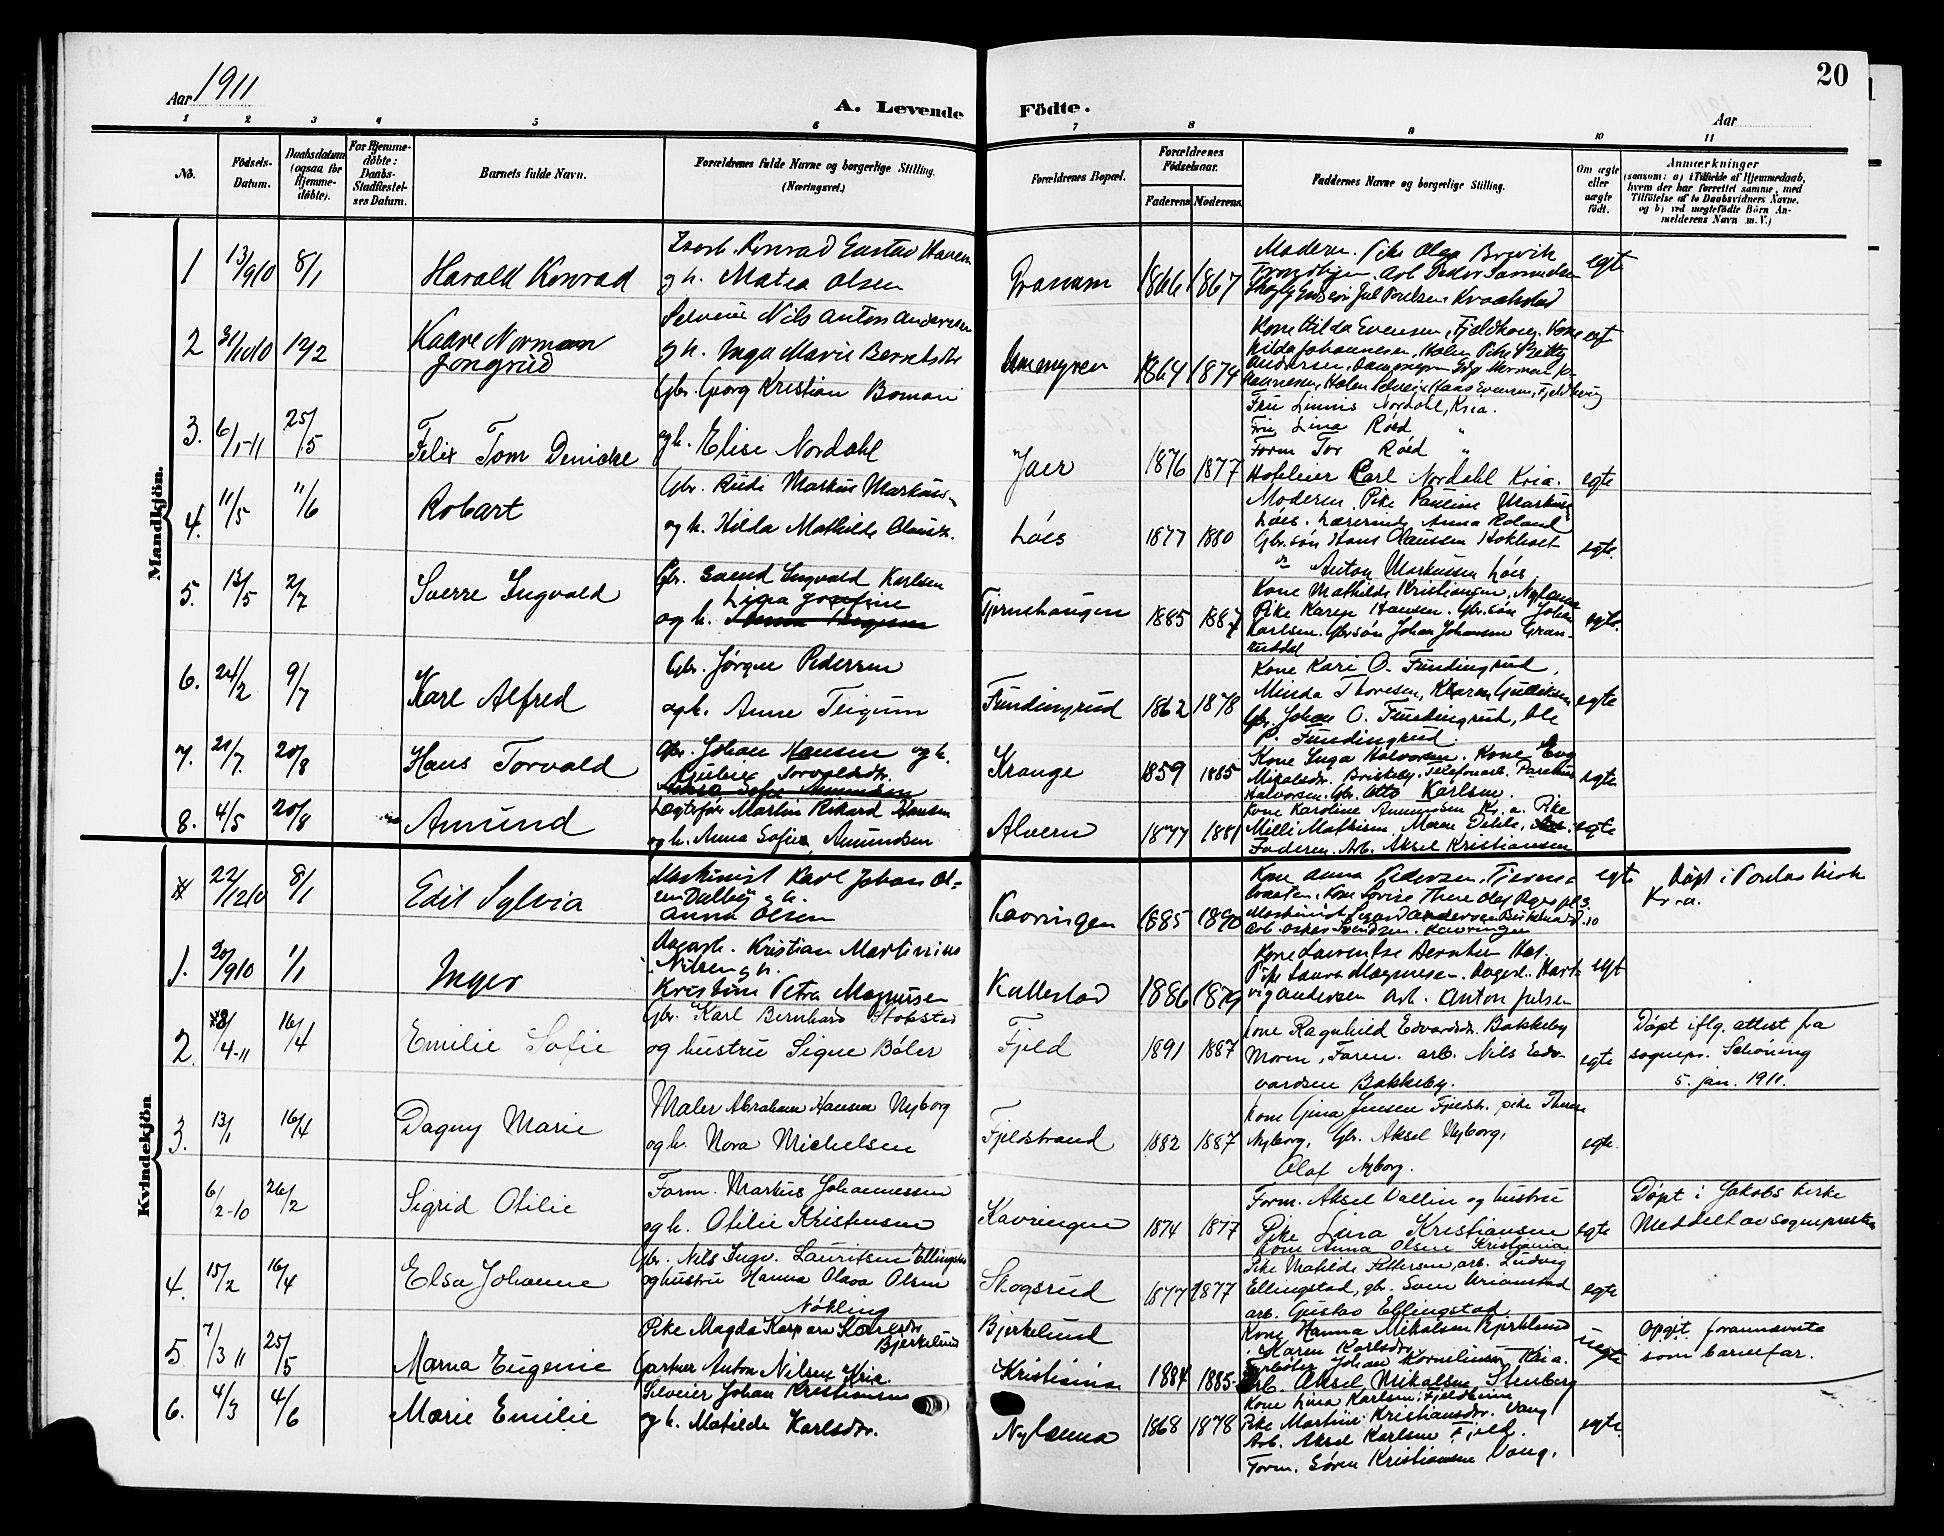 Aar 1911
A. Levende Födte.
Aar
20
1 2 3 4 5 6 7 8 9 10 11
No.
Födsels-Datum.
Daabsdatum (ogsaa for Hjemme-döbte).
For Hjemme-döbte: Daabs-Stadfæstel-ses Datum.
Barnets fulde Navn.
Forældrenes fulde Navne og borgerlige Stilling. (Næringsvei.)
Forældrenes Bopæl.
Forældrenes Födselsaar.
Faderens Moderens
Faddernes Navne og borgerlige Stilling.
Om ægte eller uægte födt.
Anmærkninger
(saasom: a) i Tilfælde af Hjemmedaab,
hvem der har forrettet samme, med
Tilföielse af to Daabsvidners Navne.
og b) ved uægtefödte Börn An-
melderens Navn m. V.)
Mandkjön.
1 13/9 10 8/1 Harald Konrad
Konrad Gustav
og h. Matea Olsen
Granum 1866 1867
Moderen. Pike Olga Brevik
egte
2 31/10 10 12/2 Kaare Norman
Jongrud
Selveier Nils Anton Andersen
og h. Inga Marie Berntsdtr
1864 1874
Kone Hilda Evensen, Fjeldhøy, Kone
Hilda Johannesen, Holen Pike Betty
egt
3. 6/1-11 25/5 Felix Tom Denicke
Gbr. Georg Kristian Boman
og h. Elise Nordahl
Jaer 1876 1877
Fru Linnis Nordahl, Kria.
Fru Lina Røed "
Form Tor Røed "
Hofeier Carl Nordahl Kria.
egte
4. 11/5 11/6 Robart
Gbr. Rudi Markus Markus-
og h. Hilda Mathilde Clausdtr.
Løes 1877 1880
Moderen. Pike Pauline Markuss
Løes. Lærerinde Anna Roland
Gbr. søn Hans Claussen Hokholt
do Anton Markussen Løes
egte.
5. 13/5 2/7 Sverre Ingvald
Gbr. Svend Ingvald Karlsen
Lina Josefine
og h.
Tjernshaugen 1885 1887
Kone Mathilde Kristiansen, Nylænna
Pike Karen Hansen. Gbr. søn Johan
Karlsen. Gbr søn Johan Johansen Gran-
ruddal
egte.
6. 24/2 9/7 Karl Alfred
Gbr. Jørgen Pedersen
og h. Anne Teigum
Fundingrud 1862 1878
Kone Kari O. Fundingrud,
Minda Thoresen, Karen Gulliksen
Gbr. Johan O. Fundingrud, Ole
P. Fundingrud
egte
7. 21/7. 20/8 Hans Torvald
Gbr. Johan Hansen og h.
Torvaldsdtr.
Krange 1859 1885
Kone Inga Halvorsen. Kone Eva
Mikalsdtr. Briskeby. Telefonarb.
Halvorsen. Gbr. Otto Karlsen.
egte
8. 4/5 20/8 Amund
Lægtefør Martin Rikard Hansen
og h. Anna Sofie Amundsen
Alvern 1877 1881
Kone Karoline Amundsen Kr.a. Pike
Milli Mathisen. Maren
Faderen. Arb. Aksel Kristiansen
egte
Kvindekjön
* 22/12 10 8/1 Edit Sylvia
Maskinist Karl Johan Ol-
sen Dalby og h.
Anna Olsen
Kavringen 1885 1890
Kone Anna Pedersen, Tjerns-
braaten. Kone Lovise There Olaf Ryes pl 3.
Arb. Oskar Svendsen. Kavringen
egte
Døpt i Paulus kirke
Kr.a.
1. 20/9 10 1/1 Inger
Dagarb. Kristian Martinius
Nilsen og h.
Kristine Petra Magnusen
Kallestad 1886 1879
Kone Laurentse Berntsen Hal.
Pike Laura Magnusen. Dagarb. Hart-
vig Andersen Arb. Anton Julsen
egt
2. 8/4-11 16/4 Emilie Sofie
Gbr. Karl Bernhard Stokstad
og hustru Signe Bøler
Fjeld 1891 1887
Kone Ragnhild Edvardsdtr. Bakkeby
Moren, Faren. arb. Nils Edv-
vardsen Bakkeby.
egte
Døpt iflg. attest fra
sognepr. Schøning
5. jan. 1911.
3. 13/1 16/4 Dagny Marie
Maler Abraham Hansen Nyborg
og h. Nora Michelsen
Fjeldstrand 1882 1887
Kone Gina Jensen Fjeldst. pike Thora
Nyborg, Gbr. Aksel Nyborg,
Olaf Nyborg.
egte.
6/2-10 26/2 Sigrid Otilie
Form. Markus Johannessen
og h. Otilie Kristensen
Kavringen 1874 1877
Form. Aksel Vallin og hustru
Pike Lina Kristiansen
Kone Anna Olsen Kristiania
egte
Døpt i Jakobs kirke
Meddelt av sognepresten
4. 15/2 16/4 Elsa Johanne
Gbr. Nils Ingv. Lauritsen Ellingstad
og hustru Hanna Olava Olsen
Nøkling
Skogsrud 1877 1877
Pike Matilde Pettersen, arb. Ludvig
Ellingstad, gbr. Sven Urianstad
arb. Gustav Ellingstad
egte
5 7/3 11 25/5 Marna Eugenie
Pike Magda Kaspara Karlsdtr
Bjerkelund
Gartner Anton Nilsen Kria.
Bjerkelund
Kristiania 1884 1885
Kone Hanna Mikalsen Bjerklund
Maren Karlsdtr.
Johan Korneliusen Kria.
Arb. Aksel Mikalsen Stenberg
uegte
Opgit forannævnte
som barnefar.
6. 4/3 4/6 Marie Emilie
Selveier Johan Kristiansen
og h. Matilde Karlsdtr.
Nylænna 1868 1878
Kone Lina Karlsen, Fjeldheim
Pike Martine Kristiansdtr. Vang
Arb. Aksel Karlsen Fjeld.
Form. Søren Kristiansen Vang.
egte.